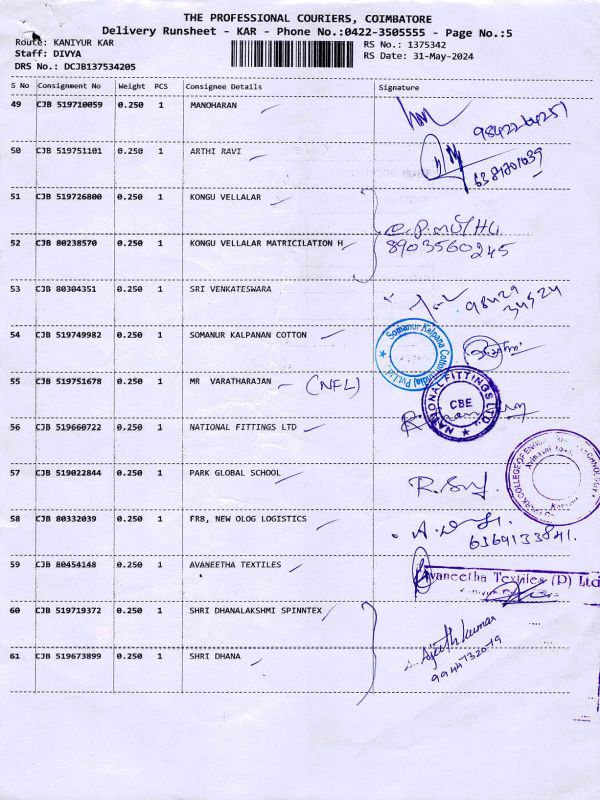 THE PROFESSIONAL COURIERS, COIMBATORE
Delivery Runsheet - KAR - Phone No.:0422-3505555 - Page No.:5
Route: KANIYUR KAR
RS No.: 1375342
Staff: DIVYA
RS Date: 31-May-2024
DRS No.: DCJB137534205
S No Consignment No Weight PCS Consignee Details Signature
49 CJB 519710059 0.250 1 MANOHARAN
9842264251
50 CJB 519751101 0.250 1 ARTHI RAVI
6381701039
51 CJB 519726800 0.250 1 KONGU VELLALAR
52 CJB 80238570 0.250 1 KONGU VELLALAR MATRICILATION H
8903560245
53 CJB 80304351 0.250 1 SRI VENKATESWARA
98429
34524
54 CJB 519749982 0.250 1 SOMANUR KALPANAN COTTON
Somanur Kalpana Cotton India) Pvt Ltd
55 CJB 519751678 0.250 1 MR VARATHARAJAN (NFL)
NATIONAL FITTINGS LTD.
CBE
56 CJB 519660722 0.250 1 NATIONAL FITTINGS LTD
57 CJB 519022844 0.250 1 PARK GLOBAL SCHOOL
PARK COLLEGE OF ENGI TECHNOLOGY
58 CJB 80332039 0.250 1 FR8, NEW OLOG LOGISTICS
6369133841.
59 CJB 80454148 0.250 1 AVANEETHA TEXTILES
vaneetha Textiles (P) Ltd
60 CJB 519719372 0.250 1 SHRI DHANALAKSHMI SPINNTEX
Ajithkumar
61 CJB 519673899 0.250 1 SHRI DHANA
9944132019